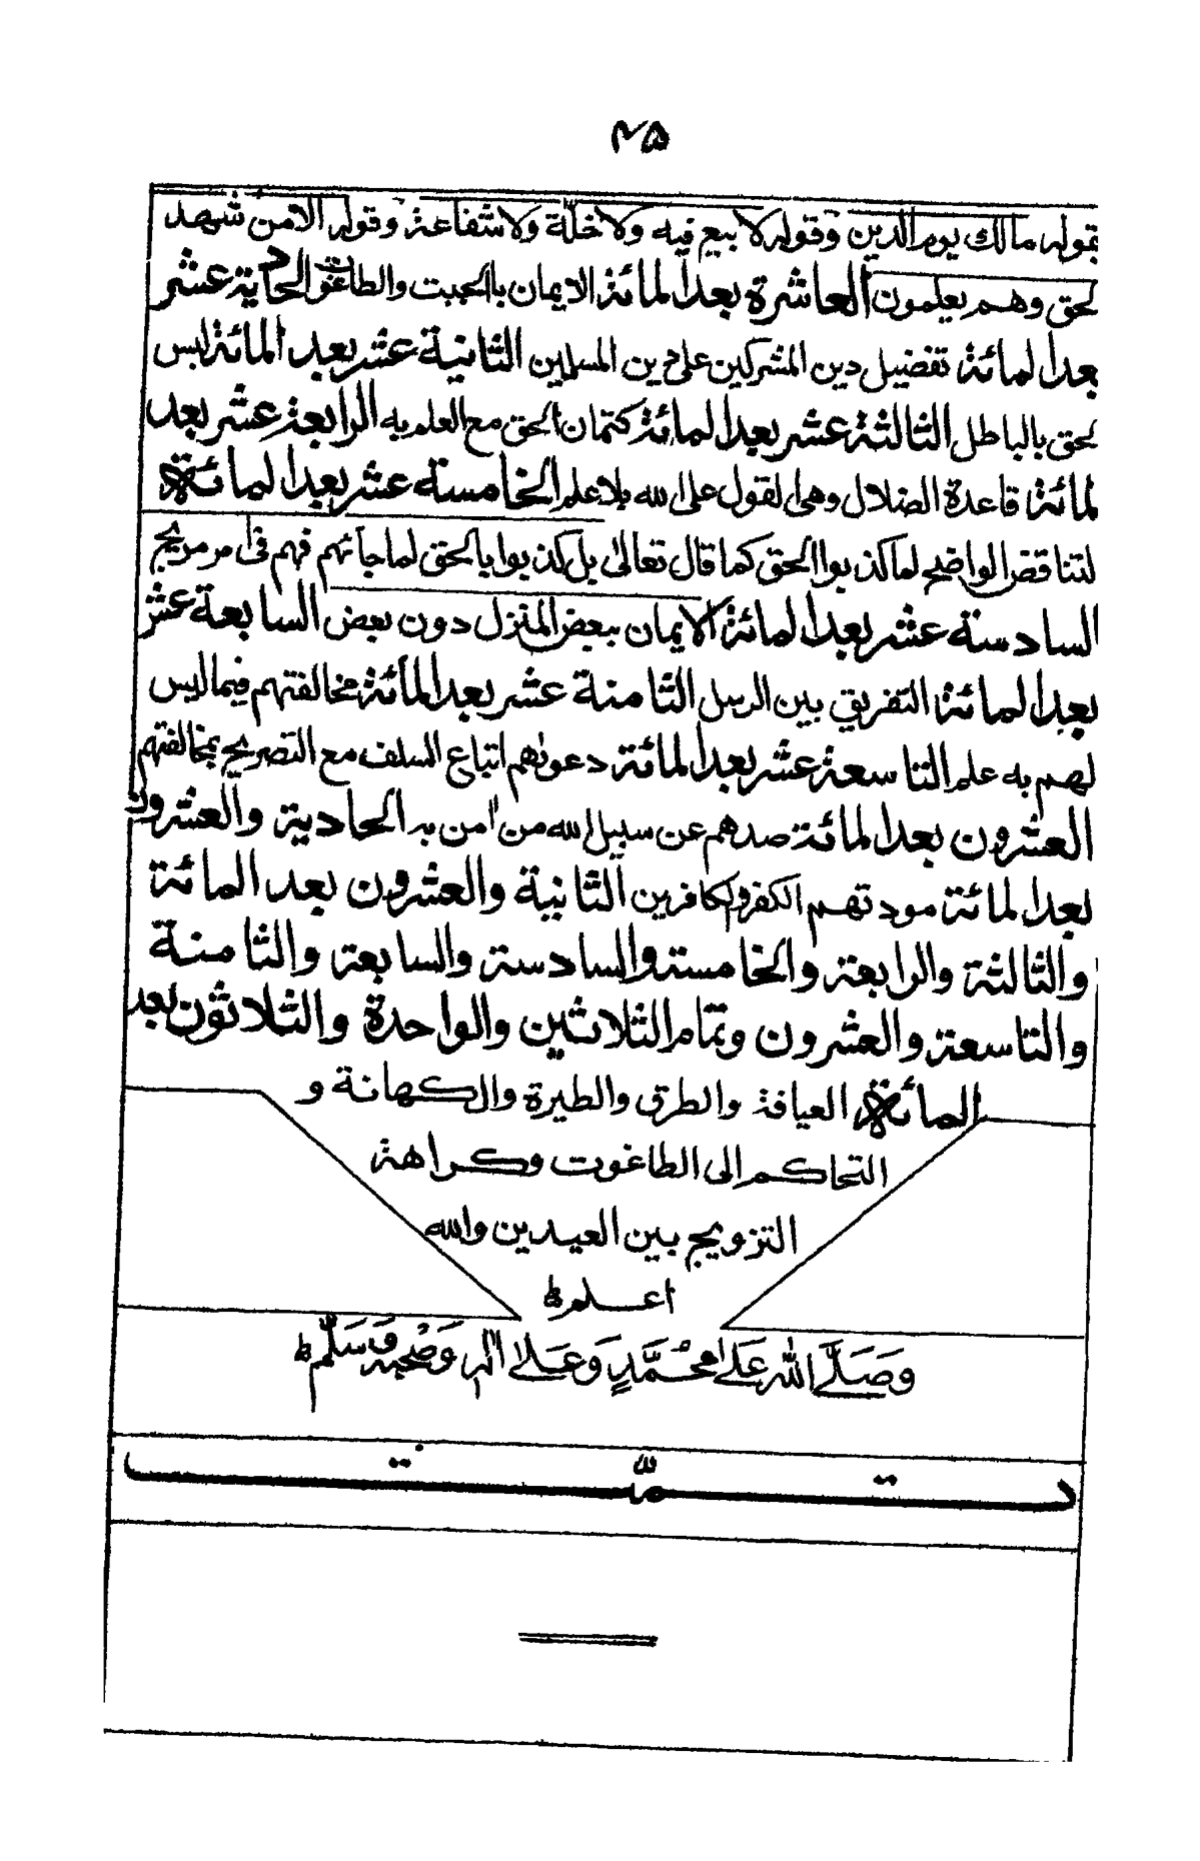 ٤٥
بقوله مالك يوم الدين وقوله لا بيع فيه ولا خلّة ولا شفاعة وقوله الا من شهد
لحق وهم يعلمون العاشرة بعد المائة الايمان بالجبت والطاغوت الحادية عشر
بعد المائة تفضيل دين المشركين على دين المسلمين الثانية عشر بعد المائة لبس
لحق بالباطل الثالثة عشر بعد المائة كتمان الحق مع العلم به الرابعة عشر بعد
لمائة قاعدة الضلال وهى القول على الله بلا علم الخامسة عشر بعد المائة
لتناقض الواضح لما كذبوا الحق كما قال تعالى بل كذبوا بالحق لما جآئهم فهم فى امر مريج
السادسة عشر بعد المائة الايمان ببعض المنزل دون بعض السابعة عشر
بعد المائة التفريق بين الرسل الثامنة عشر بعد المائة مخالفتهم فيما ليس
لهم به علم التاسعة عشر بعد المائة دعوٰهم اتباع السلف مع التصريح بمخالفتهم
العشرون بعد المائة صدهم عن سبيل الله من اٰمن به الحادية والعشرون
بعد المائة مودتهم الكفر والكافرين الثانية والعشرون بعد المائة
والثالثة والرابعة والخامسة والسادسة والسابعة والثامنة
والتاسعة والعشرون وتمام الثلاثين والواحدة والثلاثون بعد
المائة العيافة والطرق والطيرة والكهانة و
التحاكم الى الطاغوت وكراهة
التزويج بين العيدين والله
اعلم
وَصَلَّى الله عَلٰى محمَّدٍ وَعَلٰى اٰله وَصَحْبِهٖ وَسَلَّم
تمّت